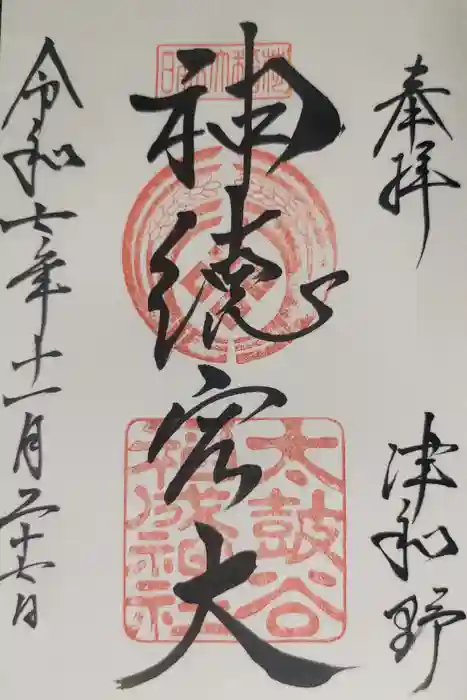 奉拝
津和野
神徳宏大
太鼓谷
稲成神社
令和七年十一月二十六日